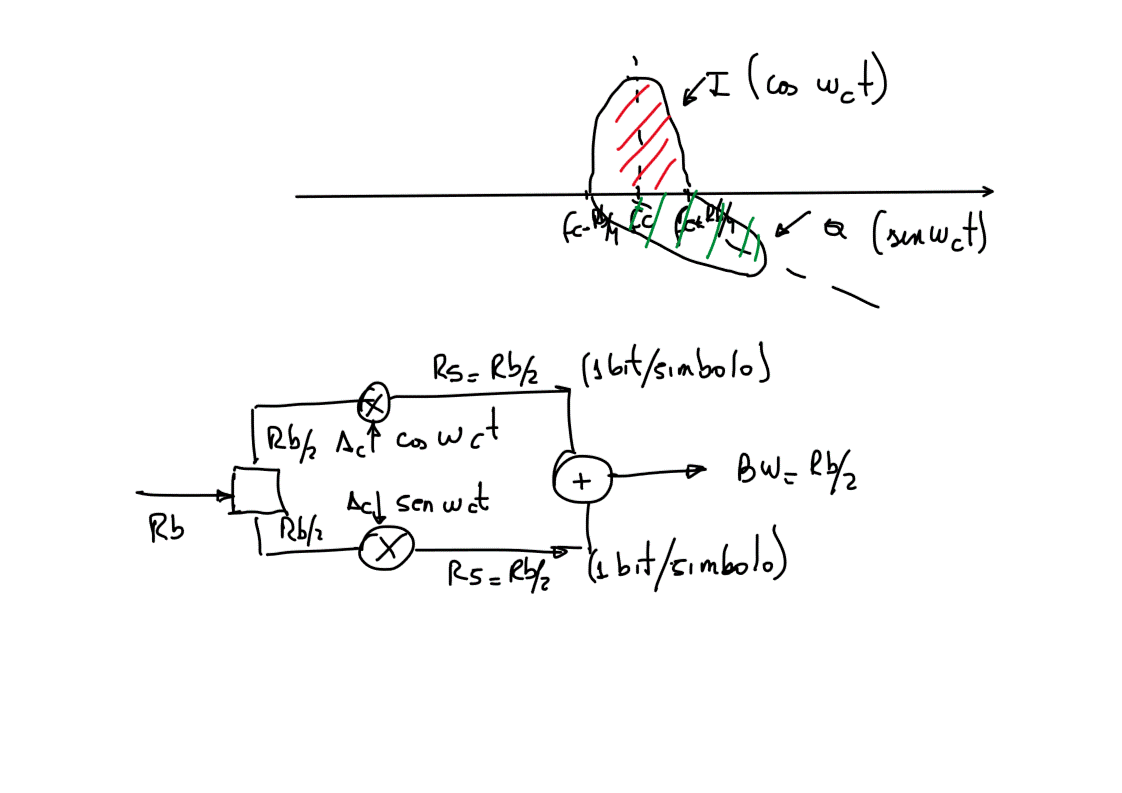 I (cos ωct)
fc-Rb/4 fc fc+Rb/4
Q (sen ωct)
Rs=Rb/2 (1bit/simbolo)
Rb/2 Ac cos ωct
+ BW=Rb/2
Ac sen ωct
Rb Rb/2
Rs=Rb/2 (1bit/simbolo)